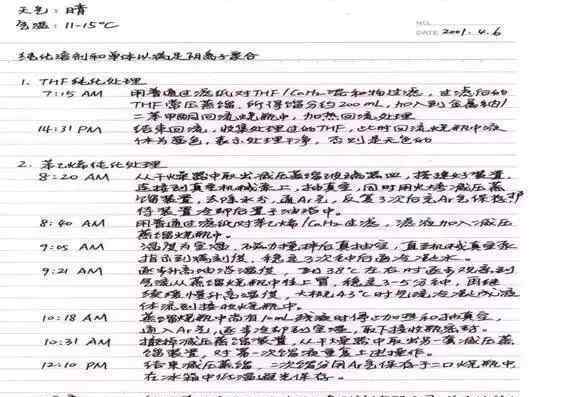 天气:晴
气温:11-15℃
NO.
DATE 2001.4.6
纯化溶剂和单体以满足阴离子聚合
1. THF纯化处理
7:15 AM 用普通过滤纸对THF/CaH₂混和物过滤,过滤后的
THF常压蒸馏,所得馏分约200 mL,加入到金属钠/
二苯甲酮回流烧瓶中,加热回流处理
14:31 PM 结束回流,收集处理过的THF,此时回流烧瓶中液
体为蓝色,表示处理干净,否则是无色的
2. 苯乙烯纯化处理
8:20 AM 从干燥器中取出减压蒸馏玻璃器皿,搭建好装置,
连接到真空机械泵上,抽真空,同时用火烤减压蒸
馏装置,去除水分,通Ar气,反复3次后充Ar气保护
待装置冷却后置于油浴中。
8:40 AM 用普通过滤纸对苯乙烯/CaH₂过滤,滤液加入减压
蒸馏烧瓶中。
9:05 AM 温度为室温,磁力搅拌后真抽空,真空机械真空表
指示到满刻度,稳定3次后中通冷凝水。
9:21 AM 逐步升高油浴温度,到38℃左右时逐步观察到
气流从蒸馏烧瓶中往上冒,稳定3-5分钟,再继
续缓慢升高温度,大概43℃时气流冷凝成液
体流到接收烧瓶中。
10:18 AM 蒸馏烧瓶中尚有10 mL残液时停止加热和抽真空,
通入Ar气,逐步冷却到室温,取下接收瓶密封。
10:31 AM 撤掉减压蒸馏装置,从干燥器中取出另一套减压蒸
馏装置,对第一次馏液重复上述操作。
12:10 PM 结束减压蒸馏,二次馏分用Ar气保存于二口烧瓶中
在冰箱中低温避光保存。